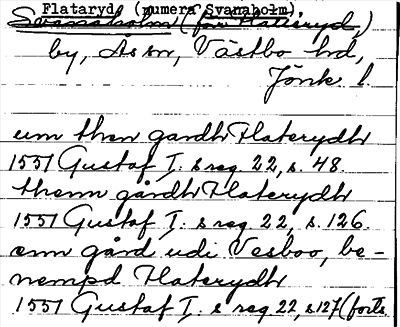 Flataryd (numera Svanaholm)
Svanaholm (förr Flatteryd,)
by, Ås sn, Västbo hd,
Jönk. l.
um then gardh Flaterydh
1551 Gustaf I. s reg. 22, s. 48.
thenn gårdh Flaterydh
1551 Gustaf I. s reg. 22, s. 126.
enn gård udi Vesboo, be-
nempd Flaterydh
1551 Gustaf I. s reg 22, s. 127 (forts.